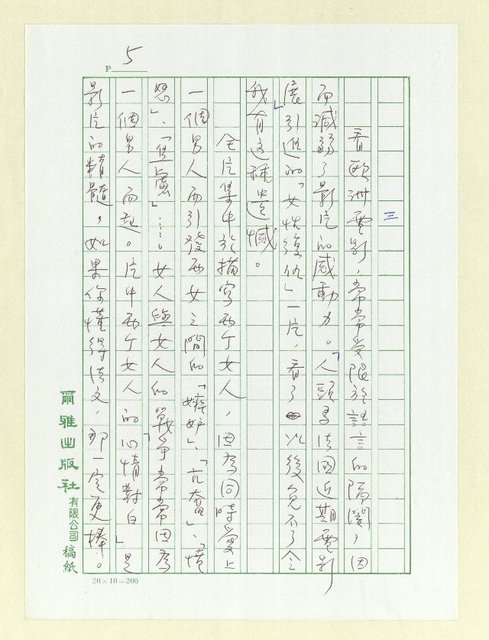 P 5
三
看歐洲電影，常常受限於語言的隔閡，因
而減弱了影片的感動力。「人頭馬法國近期電影
展」引進的「女性復仇」一片，看了以後免不了令
我有這種遺憾。
全片集中於描寫兩个女人，因為同時愛上
一個男人而引發兩女之間的「嫉妒」、「亢奮」、「憤
怒」、「焦慮」…。女人與女人的戰爭常常因為
一個男人而起。片中兩个女人的「心情對白」是
影片的精髓，如果你懂得法文，那一定更棒。
爾雅出版社有限公司稿紙
20×10=200